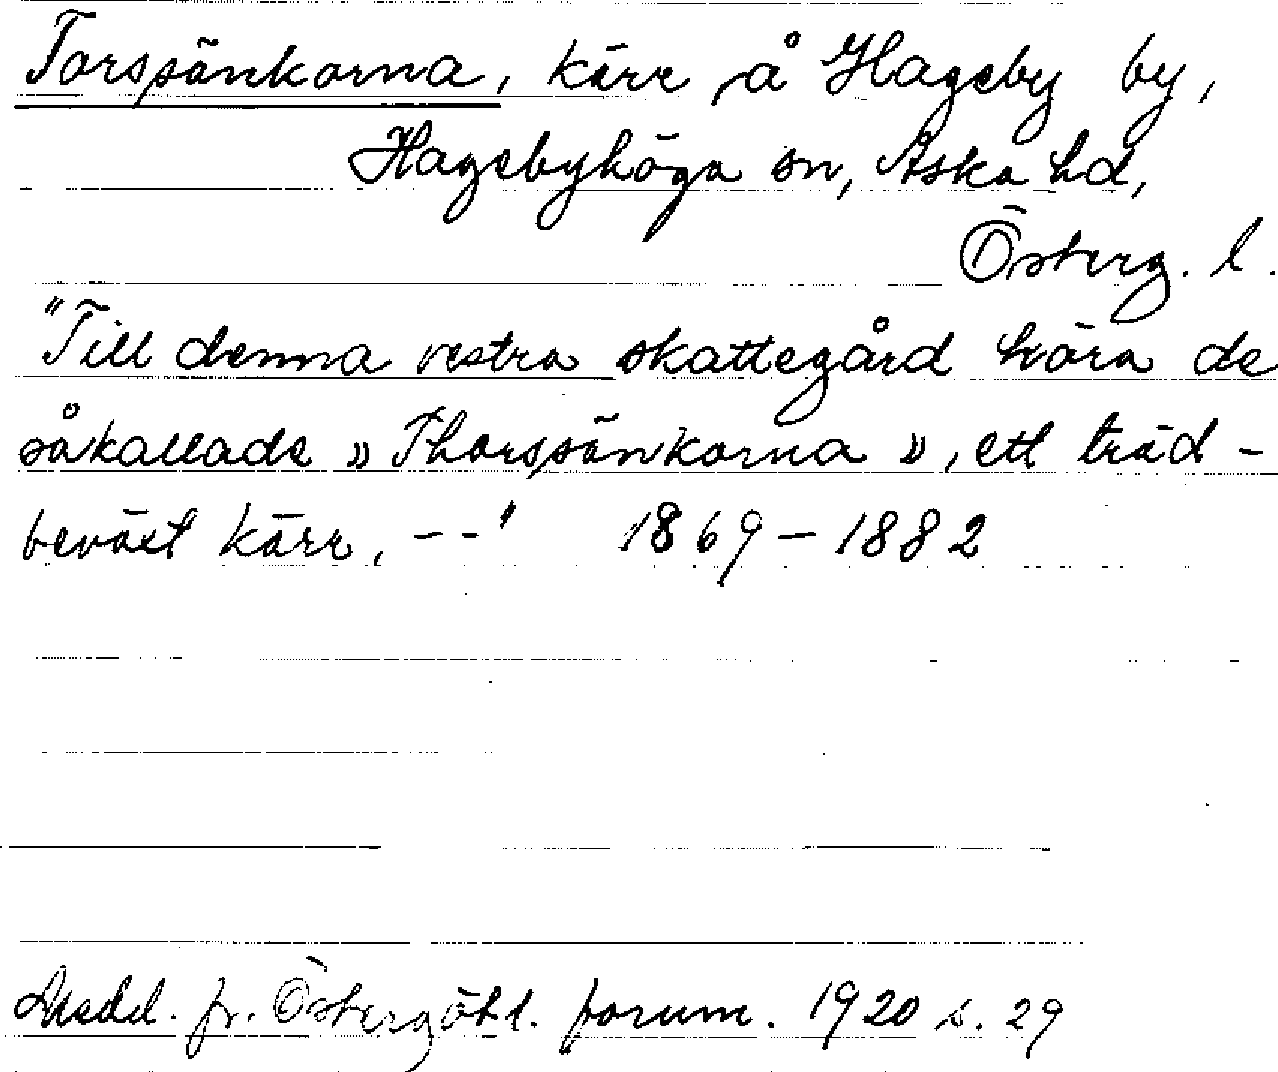 Torspänkorna, kärr å Hageby by,
Hagebyhöga sn, Aska hd,
Österg. l.
"Till denna vestra skattegård höra de
såkallade » Thorspänkorna », ett träd-
beväxt kärr, --" 1869-1882
Medd. fr. Östergötl. fornm. 1920 s. 29